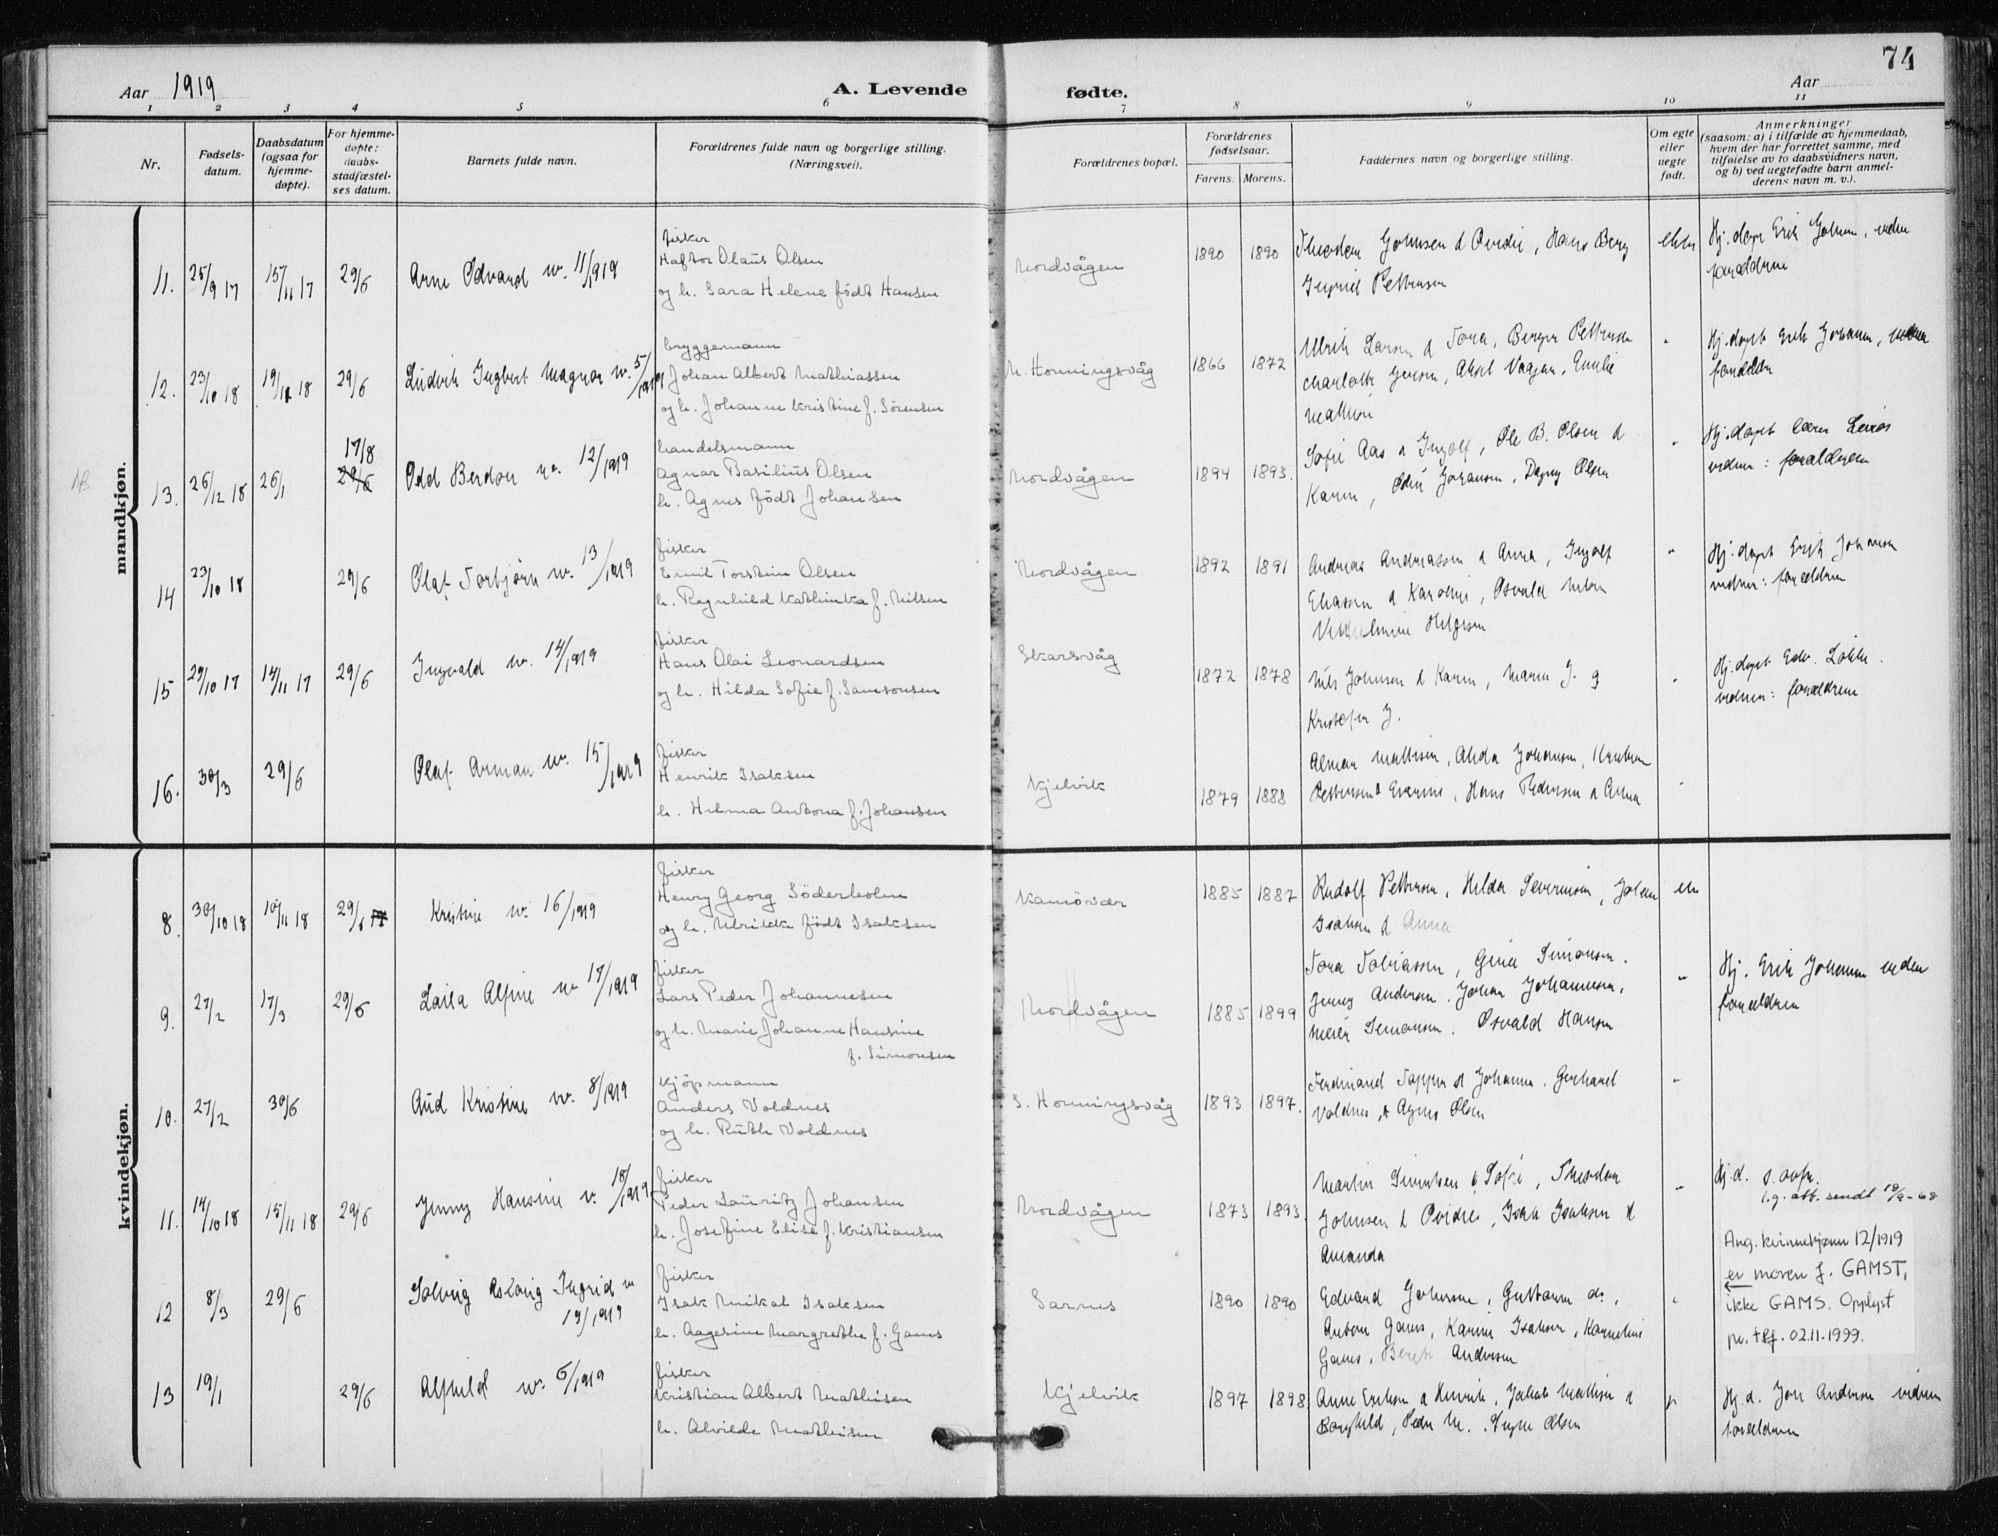 74
Aar 1919
A. Levende
fødte.
Aar
1 2 3 4 5 6 7 8 9 10 11
Nr.
Fødsels-
datum.
Daabsdatum
(ogsaa for
hjemme-
døpte).
For hjemme-
døpte:
daabs-
stadfæstel-
ses datum.
Barnets fulde navn.
Forældrenes fulde navn og borgerlige stilling.
(Næringsvei).
Forældrenes bopæl.
Forældrenes
fødselsaar.
Farens. Morens.
Faddernes navn og borgerlige stilling.
Om egte
eller
uegte
født.
Anmerkninger
(saasom: a) i tilfælde av hjemmedaab,
hvem der har forrettet samme, med
tilføielse av to daabsvidners navn,
og b) ved uegtefødte barn anmel-
derens navn m. v.).
mandkjøn.
11. 25/9 17 15/11 17 29/6 Arne Edvard nr. 11/1919
fisker
Haftor Olaus Olsen
og h. Sara Helene født Hansen
Nordvågen 1890 1890
Johnsen & Ovidie, Hans Berg
Ingrid Pettersen
ekte
Hj. døpt Erik Johnsen, vidner
forældrene
12. 23/10 18 19/12 18 29/6 Ludvik Ingbert Magnar nr. 5/1919
bryggemann
Johan Albert Mathiassen
og h. Johanne Kristine f. Sörensen
N. Honningsvåg 1866 1872
Ulrik Larsen & Tora, Berger Pettersen
Charlotte Jensen, Aksel Vaagan, Emilie
Mathisen
"
Hj. døpt Erik Johnsen, vidner
forældre
13. 26/12 18 26/1 17/8 29/6 Odd Berdon nr. 12/1919
handelsmann
Agnar Basilius Olsen
h. Agnes født Johansen
Nordvågen 1894 1893.
Sofie Aas & Ingolf, Ole B. Olsen &
Karen, Johansen, Dagny Olsen
"
Hj. døpt lærer
vidner: forældrene
14 23/10 18 29/6 Olaf Torbjörn nr. 13/1919
fisker
Emil Torstein Olsen
h. Ragnhild Kathinka f. Nilsen
Nordvågen 1892 1891
Andreas Andreassen & Anna, Ingolf
Eliassen & Karoline, Osvald Nilsen
Vilhelmine Helgesen
"
Hj. døpt Erik Johnsen
vidner: forældrene
15 29/10 17 14/11 17 29/6 Ingvald nr. 14/1919
fisker
Hans Olai Leonardsen
og h. Hilda Sofie f. Samsonsen
Skarsvåg 1872 1878
Nils Johnsen & Karen, Maren J. og
Kristofer J.
"
Hj. døpt Edv. Løkke.
vidner: forældrene
16. 30/3 29/6 Olaf Arman nr. 15/1919
fisker
Henrik Isaksen
h. Hilma Antona f. Johansen
Kjelvik 1879 1888
Mathisen, Alida Johansen,
Pettersen & Evarine, Hans Pedersen & Anna
"
kvindekjøn.
8. 30/10 18 10/11 18 29/6 Kristine nr. 16/1919
fisker
Henry Georg Söderholm
og h. Ulrikke født Isaksen
Kamöyvær 1885 1887
Rudolf Pettersen, Hilda Severinsen, Johan
Isaksen & Anna
ekte
9. 27/2 17/3 29/6 Laila Alfine nr. 17/1919
fisker
Lars Peder Johannesen
og h. Marie Johanne Hansine
f. Simonsen
Nordvågen 1885 1899
Tora Tobiassen, Gina Simonsen.
Jenny Andersen. Johan Johannesen,
Simonsen. Osvald Hansen
"
Hj. Erik Johnsen vidner
forældrene
10. 27/2 30/6 Aud Kristine nr. 8/1919
Kjöpmann
Anders Voldnes
og h. Ruth Voldnes
S. Honningsvåg 1893 1897.
Ferdinand Tapper & Johanna. Gerhard
Voldnes & Agnes Olsen
"
11. 14/10 18 15/11 18 29/6 Jenny Hansine nr. 18/1919
fisker
Peder Lauritz Johansen
h. Josefine Elise f. Kristiansen
Nordvågen 1873 1893.
Martin Sivertsen & Sofie,
Johnsen & Ovidie, Isak Isaksen &
Amanda
"
Hj. d. s. ovfr.
l.g. att. sendt 18/9-68
12 8/3 29/6 Solveig Aslaug Ingrid nr
19/1919
fisker
Isak Mikal Isaksen
h. Aagesine Margrethe f. Gams
Sarnes 1890 1890
Edvard Johnsen, Gustava do.,
Anton Gams, Karen Isaksen, Kornelius
Gams, Andersen
"
Ang. kvinnekjønn 12/1919
er moren f. GAMST,
ikke GAMS. Opplyst
pr. tlf. 02.11.1999.
13 19/1 29/6 Alfhild nr. 6/1919
fisker
Kristian Albert Mathisen
h. Alvilde Mathisen
Kjelvik 1897 1898
Anne Eriksen & Henrik, Jakob Mathisen &
Borghild, Peder M., Signe Olsen
Hj. d. Jon Andersen vidner
forældrene